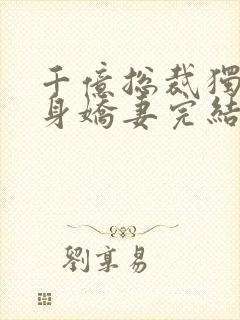 千億總裁獨
身嬌妻完結
劉享易